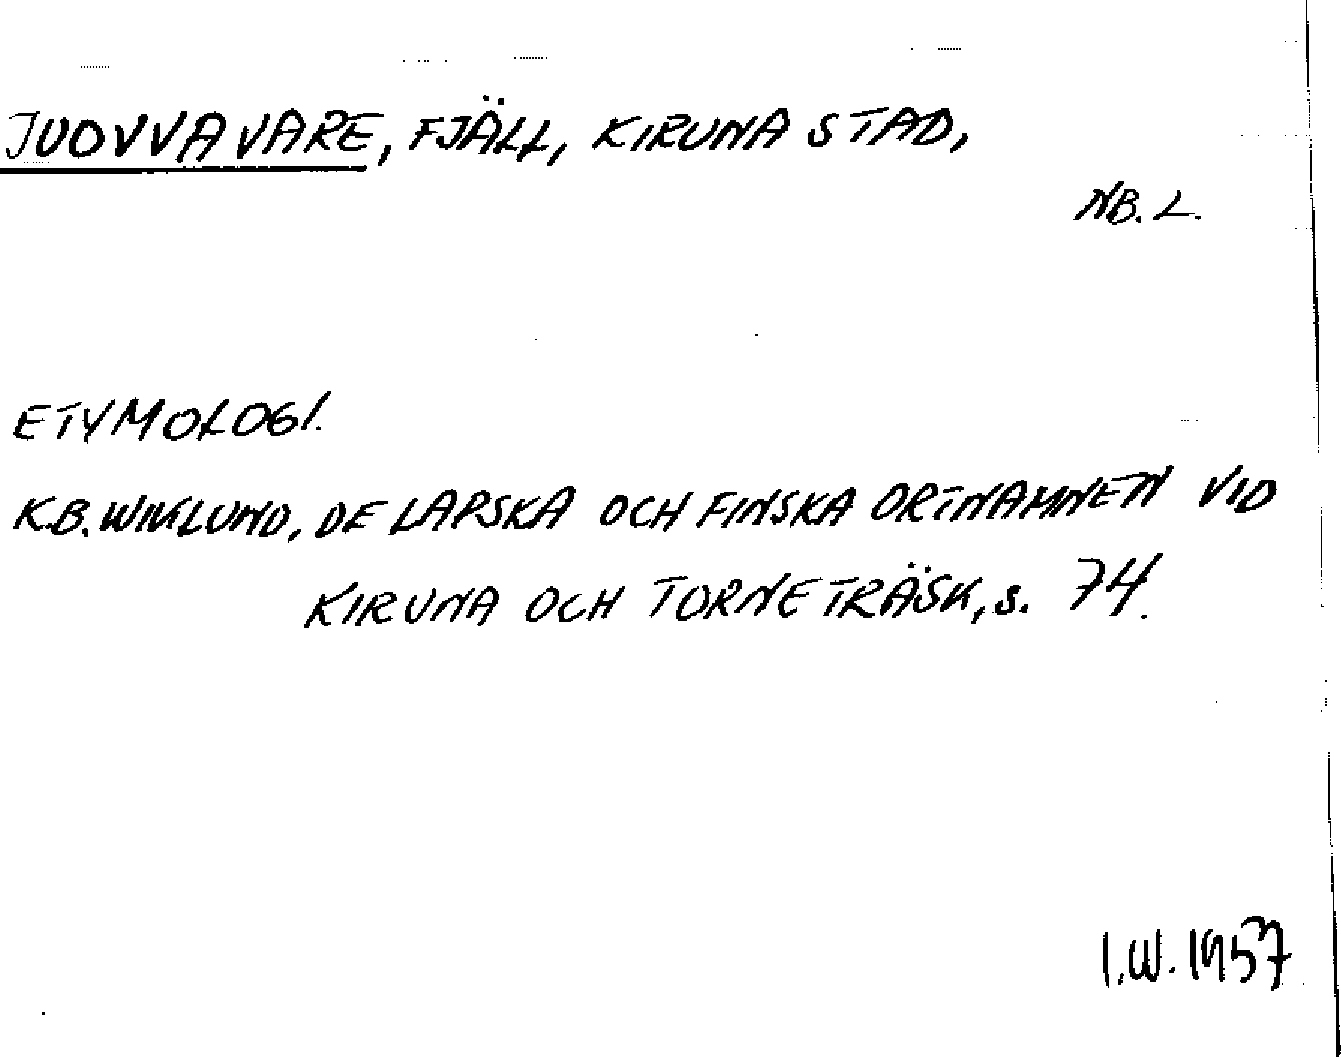 JUOVVAVARE, FJÄLL, KIRUNA STAD,
NB. L.
ETYMOLOGI.
K.B. WIKLUND, DE LAPSKA OCH FINSKA ORTNAMNEN VID
KIRUNA OCH TORNETRÄSK, s. 74.
I.W. 1957